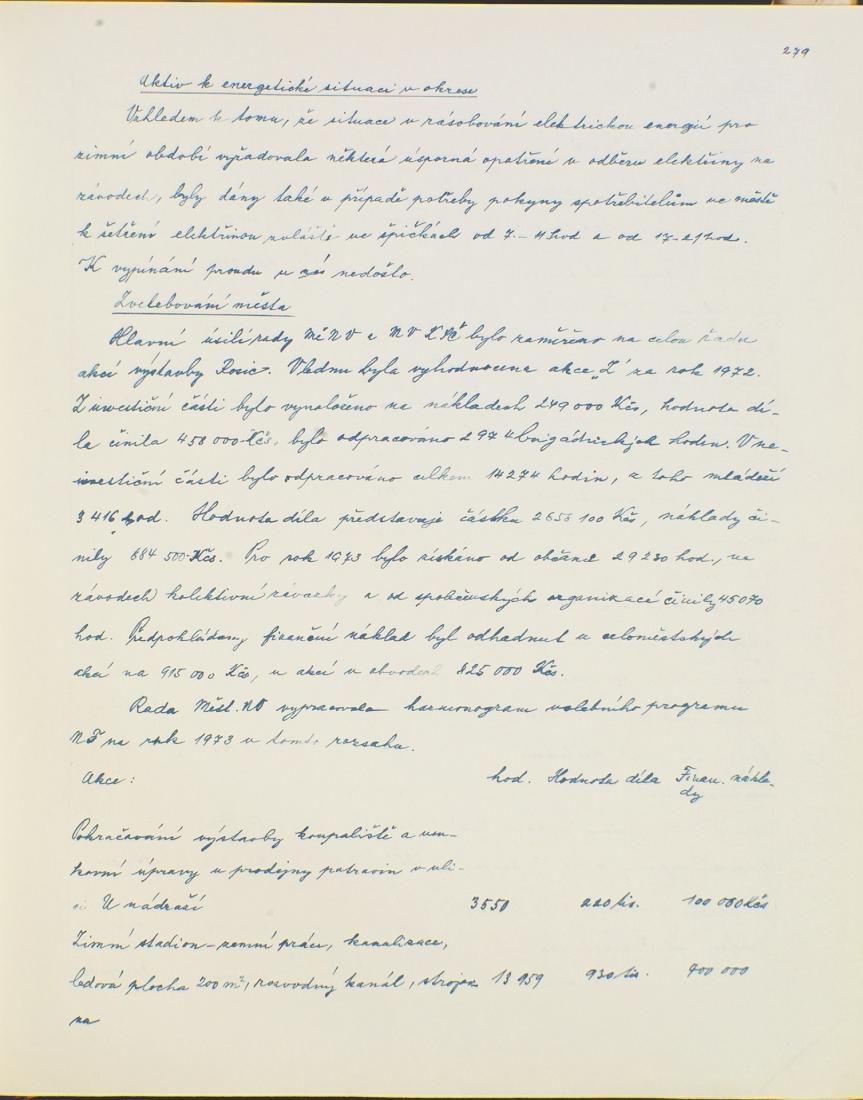 279
Aktiv k energetické situaci v okrese
Vzhledem k tomu, že situace v zásobování elektrickou energií pro
zimní období vyžadovala některá úsporná opatření v odběru elektřiny na
závodech, byly dány také v případě potřeby pokyny spotřebitelům ve městě
k šetření elektřinou zvláště ve špičkách od 7.-11 hod a od 17-21 hod.
K vypínání proudu u nás nedošlo.
Zvelebování města
Hlavní úsilí rady MěNV a MV KSČ bylo zaměřeno na celou řadu
akcí výstavby Rosic. Vlednu byla vyhodnocena akce „Z" za rok 1972.
Z investiční části bylo vynaloženo na nákladech 249 000 Kčs, hodnota dí-
la činila 450 000 Kčs, bylo odpracováno 2974 brigádnických hodin. V ne-
investiční části bylo odpracováno celkem 14274 hodin, z toho mládeží
3 416 hod. Hodnota díla představuje částku 2656 100 Kčs, náklady či-
nily 884 500 Kčs. Pro rok 1973 bylo získáno od občanů 29230 hod., na
závodech kolektivní závazky a od společenských organizací činily 45070
hod. Předpokládaný finanční náklad byl odhadnut u celoměstských
akcí na 915 000 Kčs, u akcí v obvodech 825 000 Kčs.
Rada Měst. NV vypracovala harmonogram volebního programu
NF na rok 1973 v tomto rozsahu.
Akce: hod. Hodnota díla Finan. nákla-
dy
Pokračování výstavby koupaliště a ven-
kovní úpravy u prodejny potravin v uli-
ci U nádraží 3550 220 tis. 100 000 Kčs
Zimní stadion - zemní práce, kanalizace,
ledová plocha 200 m², rozvodný kanál, strojov 13 959 930 tis. 700 000
na